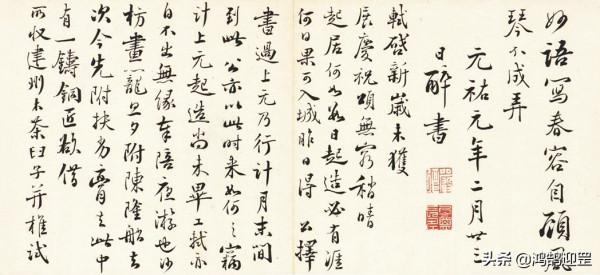 妙語寫春容自顧風
琴不成弄
元祐元年二月廿三
日醉書
軾啓新歲未獲
展慶祝頌無窮稍晴
起居何如數日起造必有涯
何日果可入城昨日得公擇
書過上元乃行計月末間
到此公亦以此時来如何〻竊
計上元起造尚未畢工軾亦
自不出無緣奉陪夜游也沙
枋畫籠旦夕附陳隆船去
次今先附扶劣膏去此中
有一鑄銅匠欲借
所收建州木茶臼子并椎試
头条 @鸿鹄迎罡